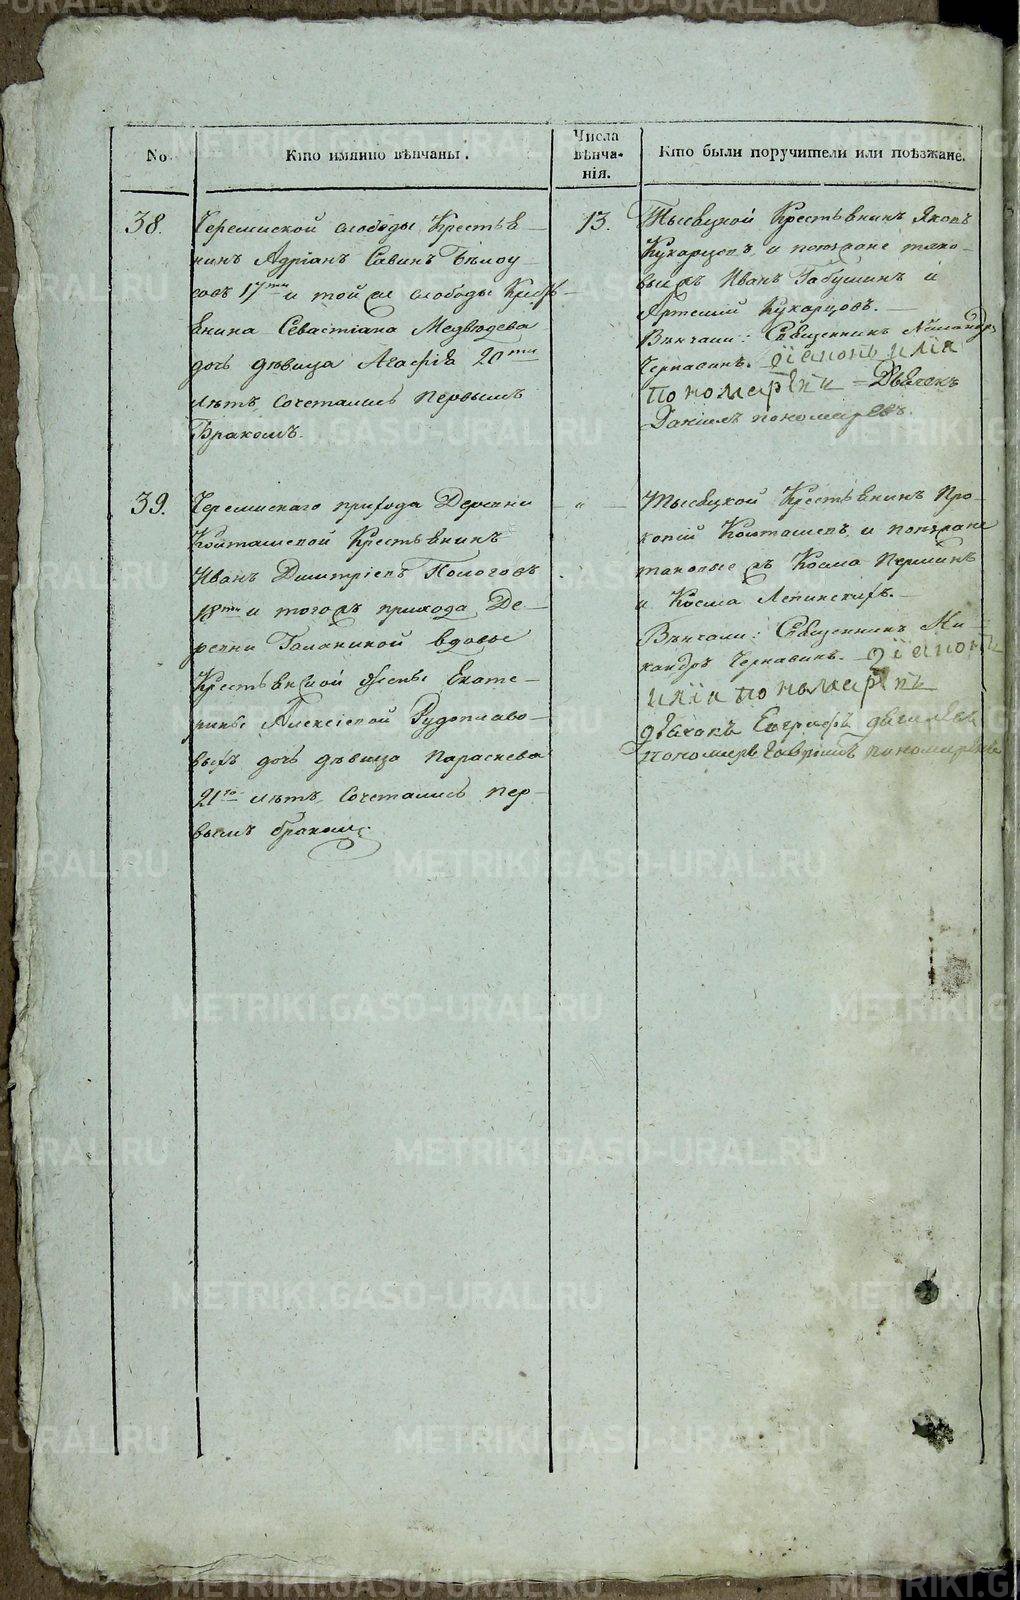 No
Кто имянно вѣнчаны.
Числа
вѣнча-
нія.
Кто были поручители или поѣзжане.
38.
Черемиской слободы Крестья-
нинъ Адріанъ Савинъ Бѣлоу
совъ 17ти и той же слободы Кресть-
янина Севастіана Медвѣдева
дочь дѣвица Агафія 20ти
лѣтъ, сочетались первымъ
Бракомъ.
13.
Крестьянинъ Яковъ
Кухарцовъ, и поѣзжане тако-
выежъ Иванъ Бабушинъ и
Артемій Кухарцовъ.
Вѣнчали: Священникъ
Чернавинъ. Діаконъ илія
пономаревъ Дьячекъ
Даніилъ пономаревъ.
39.
Черемискаго прихода Деревни
Крестьянинъ
Иванъ Димитріевъ
18ти и тогожъ прихода Де-
ревни вдовы
Крестьянской жены Екате-
рины Алексіевой Рудоплаво-
выхъ дочь дѣвица Параскева
21го лѣтъ, сочетались пер-
вымъ бракомъ.
"
Крестьянинъ Про-
копій и поѣзжане
таковыежъ Косма Перминъ
и Косма Лепинскихъ.
Вѣнчали: Священникъ Ни-
кандръ Чернавинъ. Діаконъ
илія пономаревъ
дьячокъ Евграфъ
пономарь Гавріилъ пономаревъ
METRIKI.GASO-URAL.RU